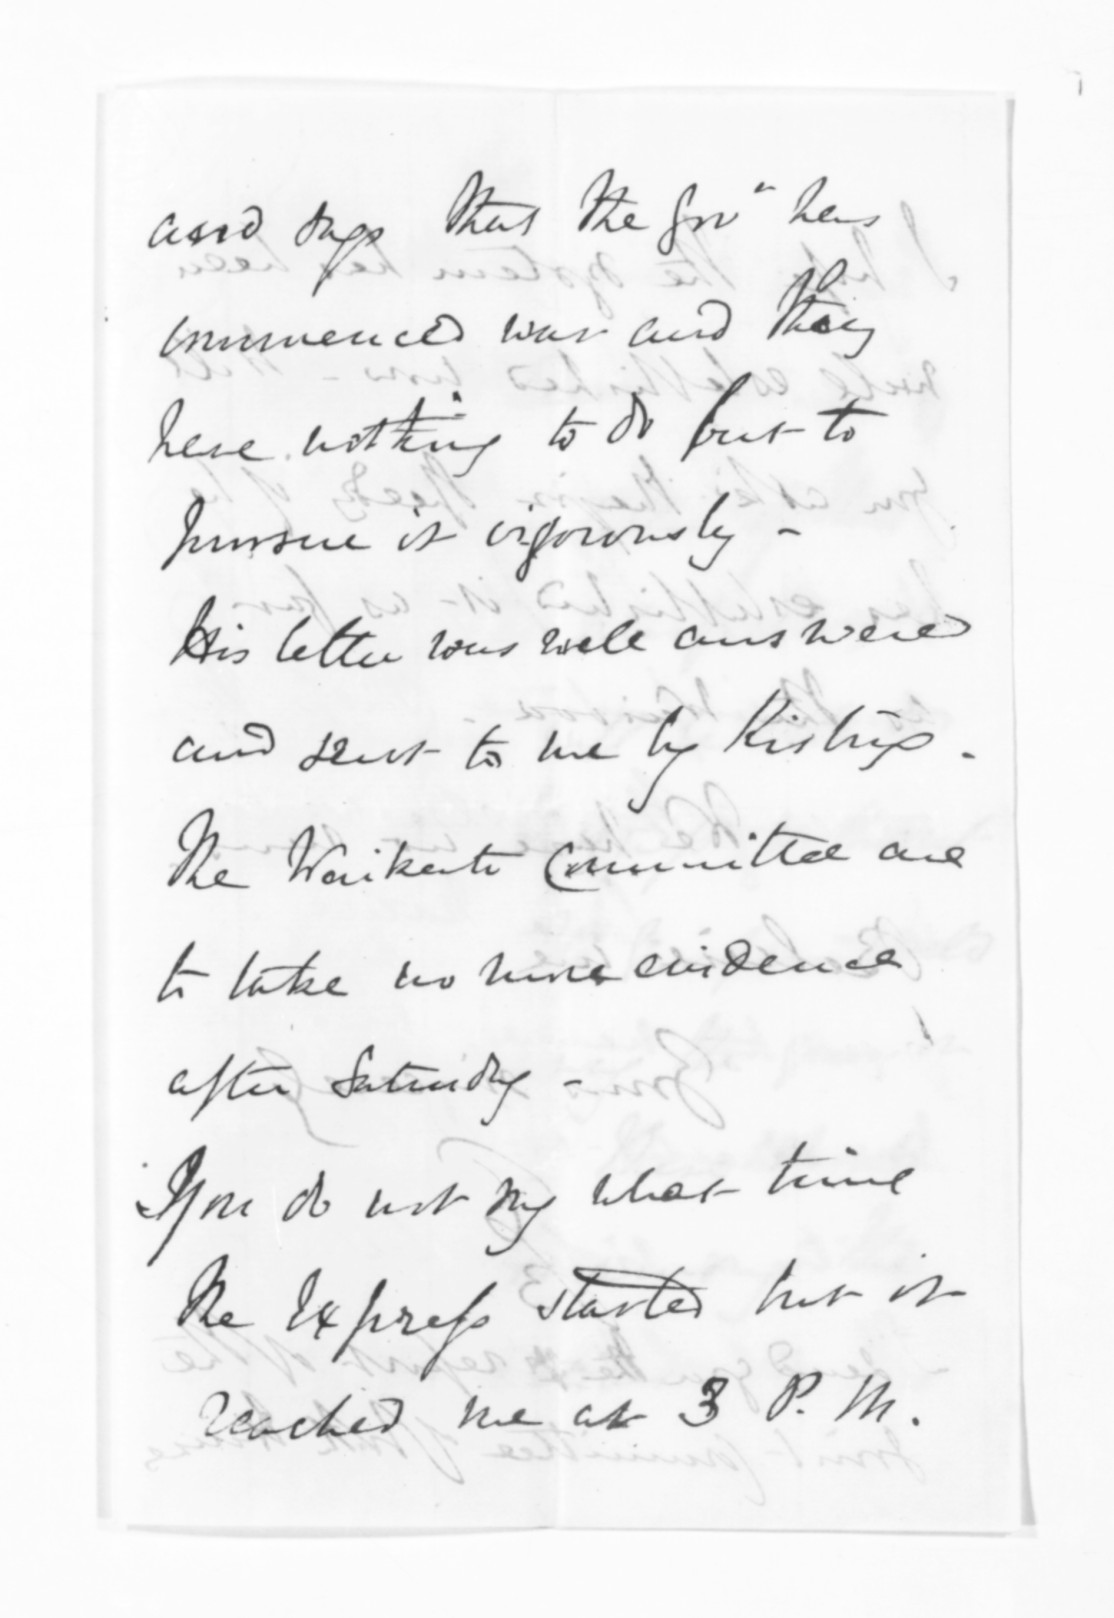 and says that the Govr has
commenced war and they
have nothing to do but to
pursue it vigorously -
His letter was well answered
and sent to me by Kistrip.
The Waikato Committee are
to take no more evidence
after Saturday -
You do not say what time
the Express started but it
reached me at 3 P. M.